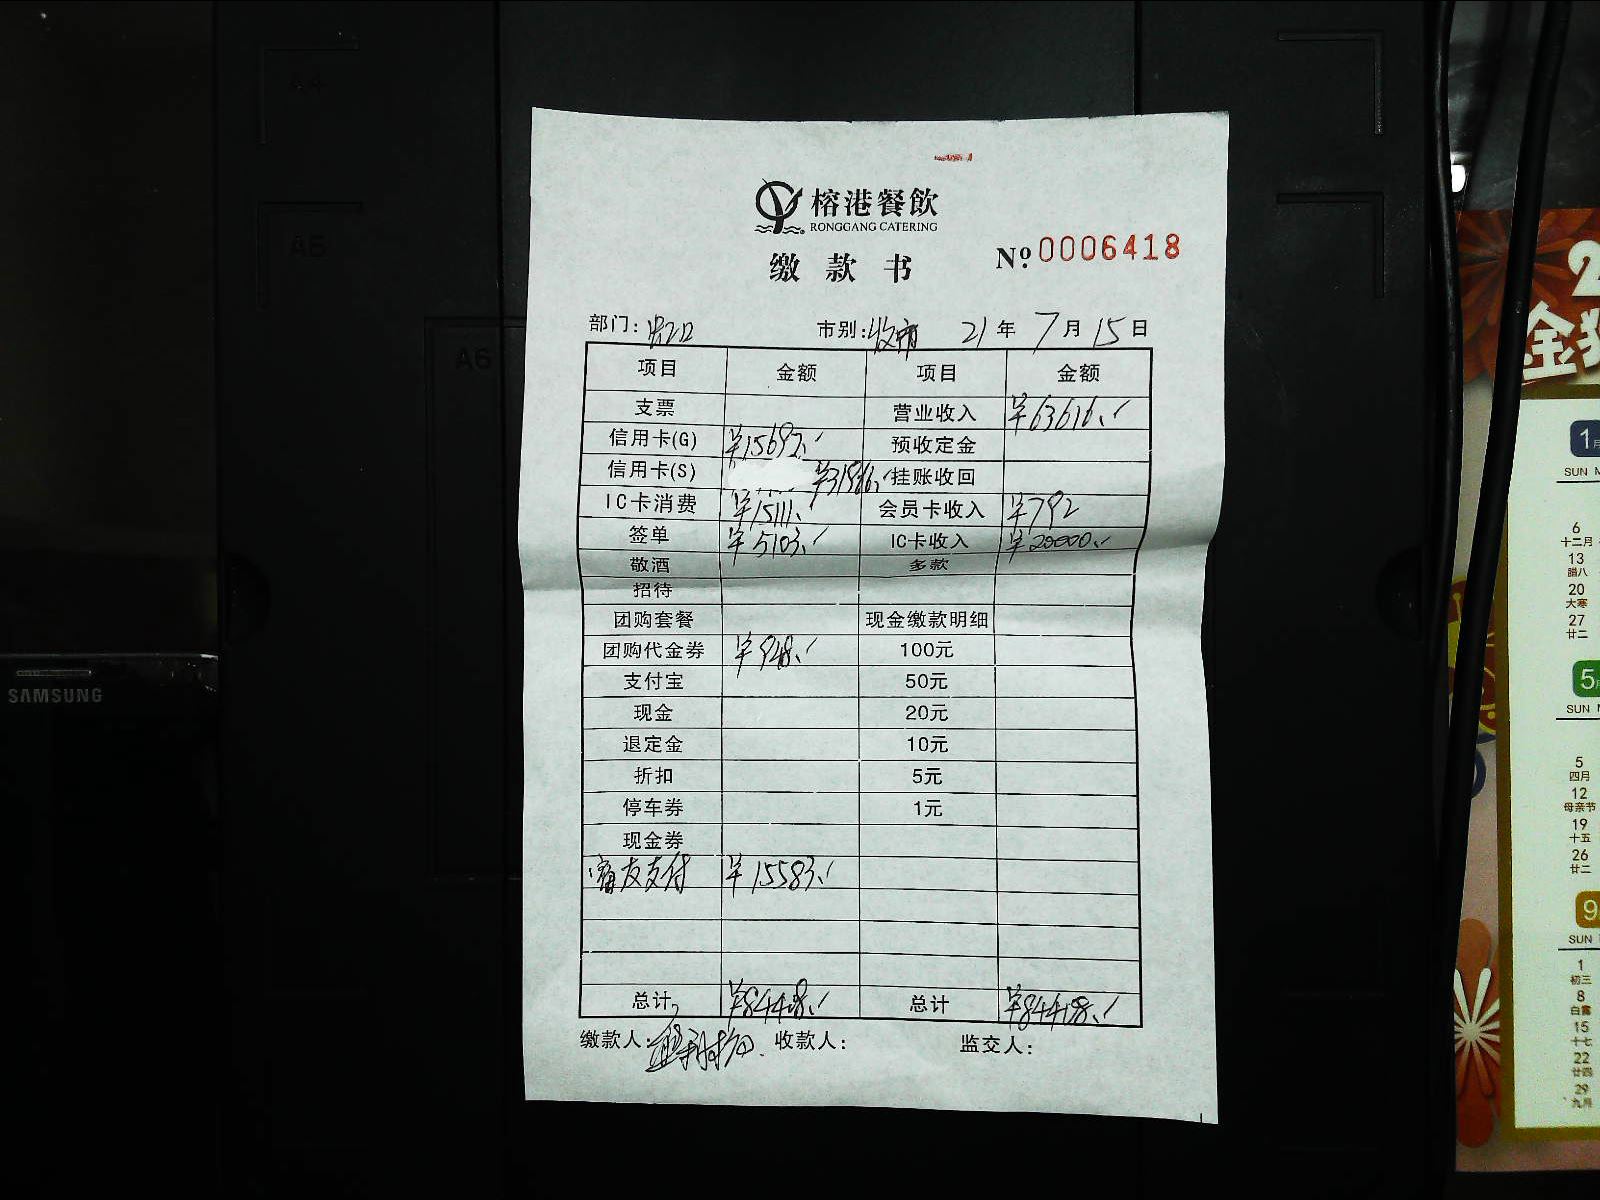 榕港餐飲
RONGGANG CATERING
缴款书
№ 0006418
部门: 市别: 收市 21年7月15日
项目 金额 项目 金额
支票 营业收入 ¥63616.
信用卡(G) ¥15697. 预收定金
信用卡(S) ¥31966. 挂账收回
IC卡消费 ¥15111. 会员卡收入 ¥792
签单 ¥5103. IC卡收入 ¥20000.
敬酒 多款
招待
团购套餐 现金缴款明细
团购代金券 ¥948. 100元
支付宝 50元
现金 20元
退定金 10元
折扣 5元
停车券 1元
现金券
友支付 ¥15583.
总计 ¥84408. 总计 ¥84408.
缴款人: 收款人: 监交人:
SAMSUNG
A4
A5
A6
2
金
1月
SUN
6
十二月
13
腊八
20
大寒
27
廿二
5
SUN
5
四月
12
母亲节
19
十五
26
廿二
9
SUN
1
初三
8
白露
15
十七
22
廿四
29
九月